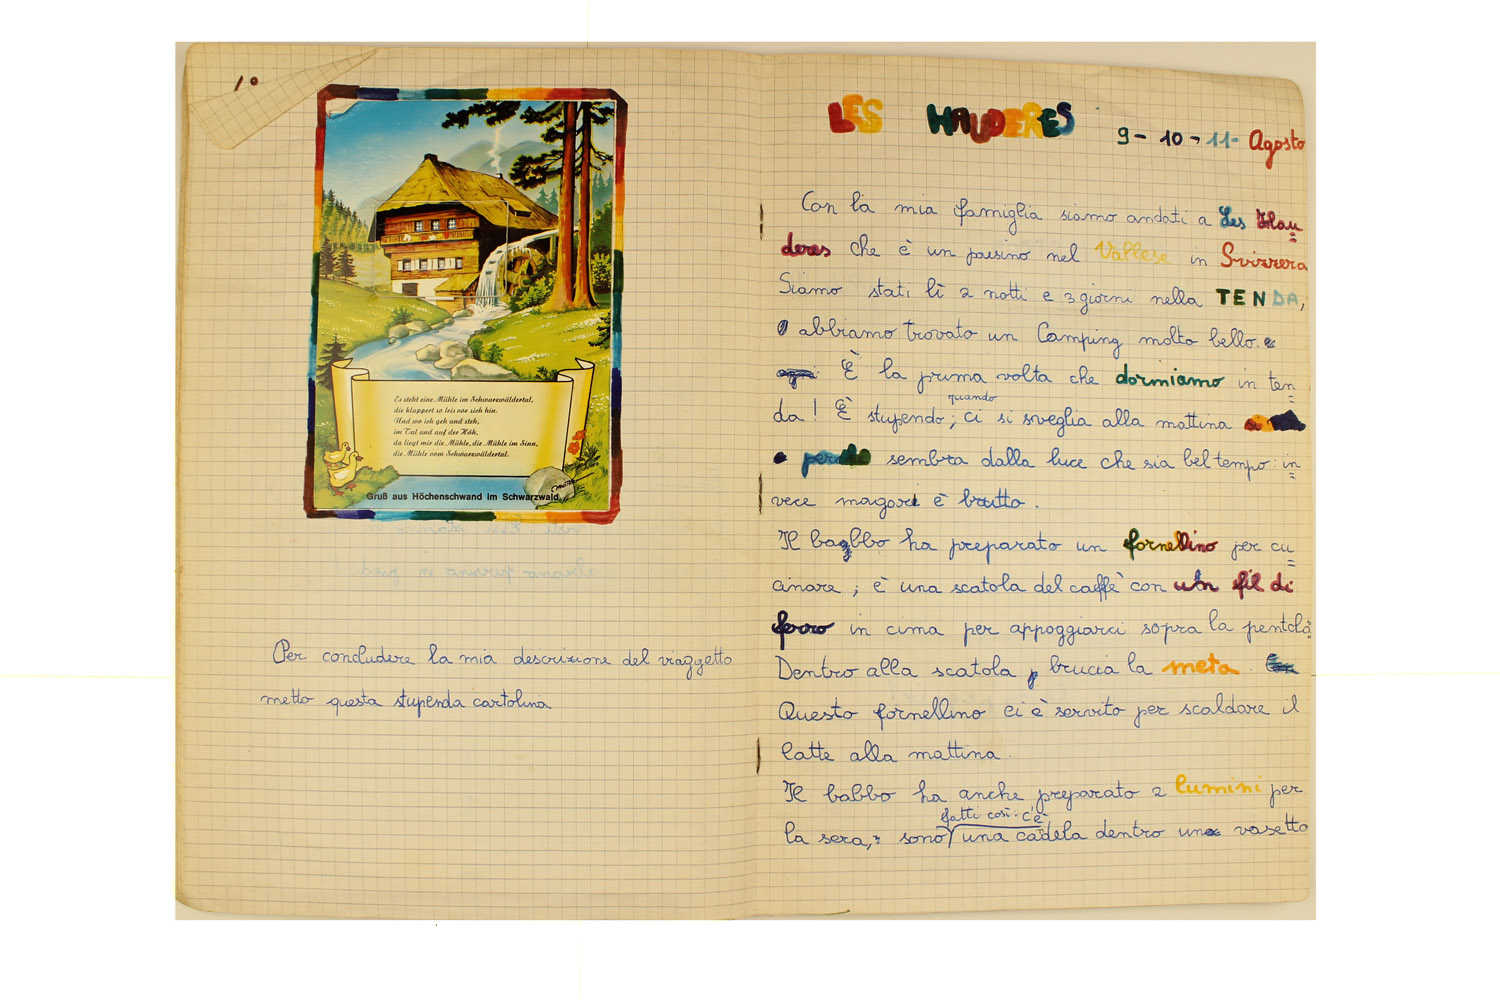 1°
Es steht eine Mühle im Schwarzwäldertal,
die klappert so leis vor sich hin.
Und wo ich geh und steh,
im Tal und auf der Höh,
da liegt mir die Mühle, die Mühle im Sinn,
die Mühle vom Schwarzwäldertal.
Gruß aus Höchenschwand im Schwarzwald
Per concludere la mia descrizione del viaggetto
metto questa stupenda cartolina
LES HAUDERES
9 - 10 - 11 - Agosto
Con la mia famiglia siamo andati a Les Hau
deres che è un paesino nel Vallese in Svizzera
Siamo stati lì 2 notti e 3 giorni nella TENDA,
abbiamo trovato un Camping molto bello.
È la prima volta che dormiamo in ten
da! È stupendo; quando ci si sveglia alla mattina
perche sembra dalla luce che sia bel tempo: in
vece magari è brutto.
Il babbo ha preparato un fornellino per cu
cinare; è una scatola del caffè con un fil di
ferro in cima per appoggiarci sopra la pentola.
Dentro alla scatola brucia la meta.
Questo fornellino ci è servito per scaldare il
latte alla mattina.
Il babbo ha anche preparato 2 lumini per
la sera, sono fatti così: c'è una cadela dentro un vasetto